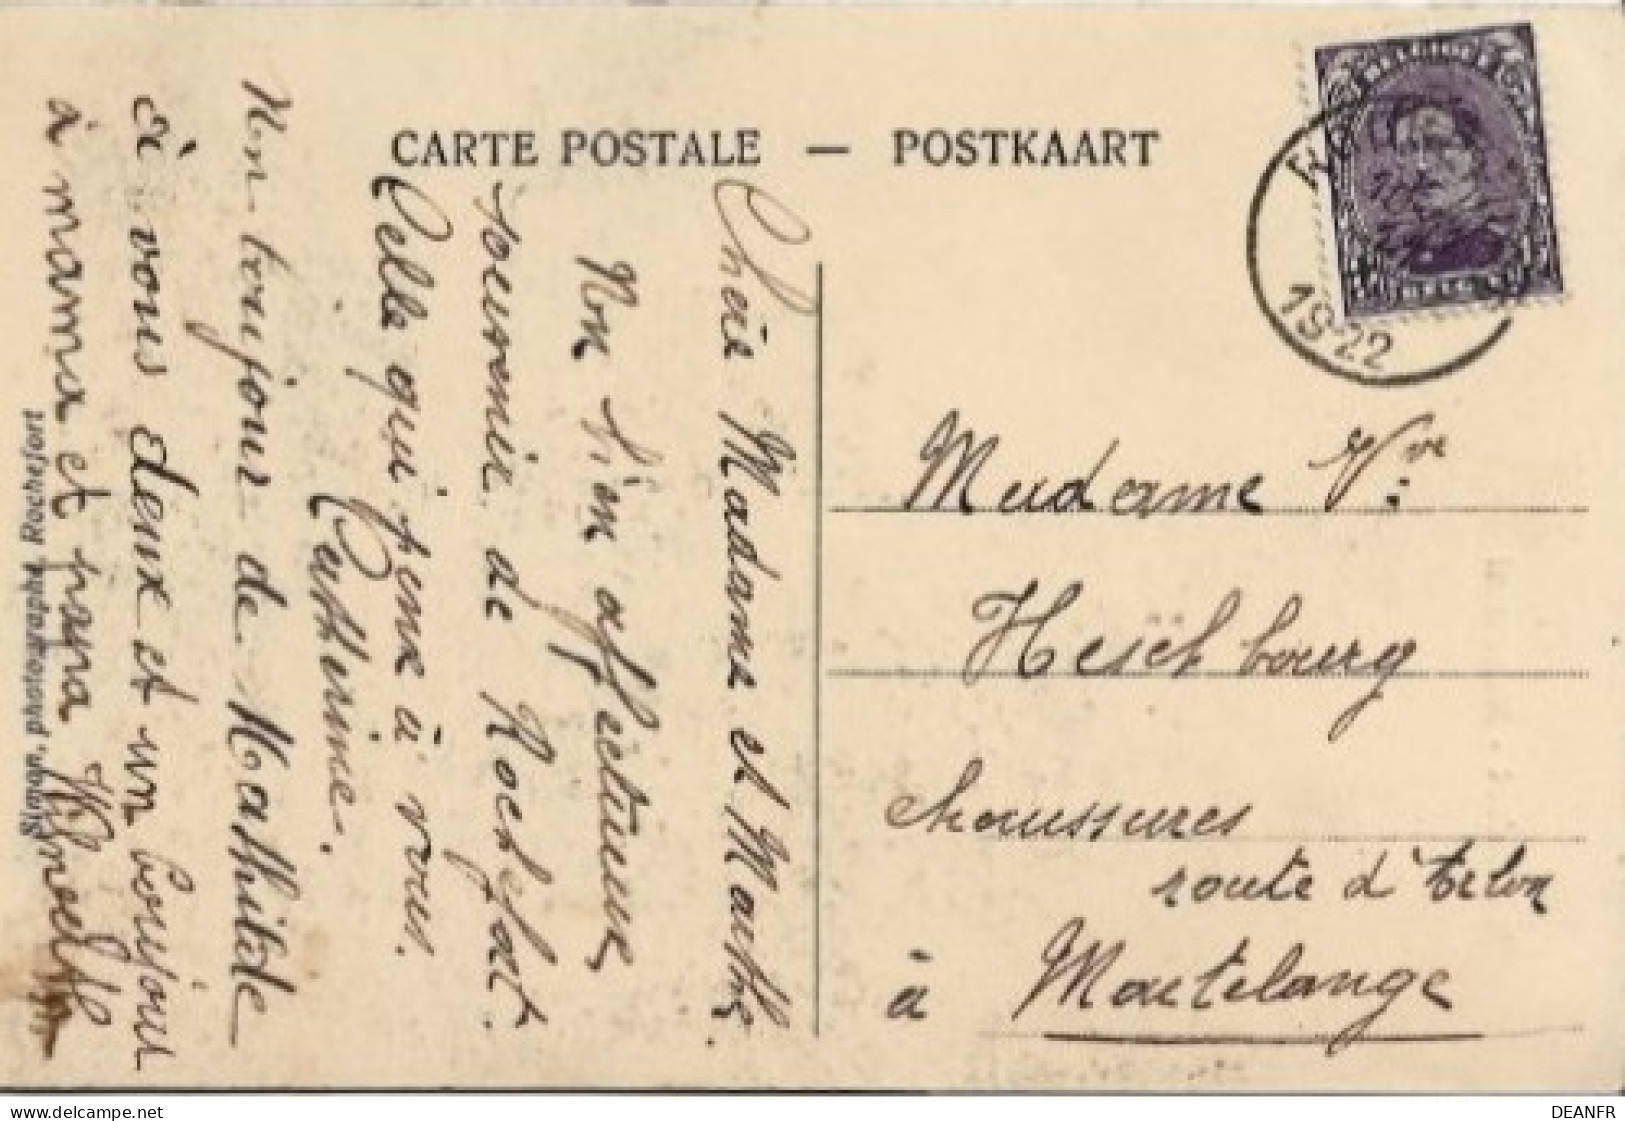 CARTE POSTALE — POSTKAART
BELGIQUE
1922
Chère Madame et Marthe.
Un bien affectueux
souvenir de Rochefort.
Celle qui pense à vous.
Catherine.
Un bonjour de Mathilde
à vous deux et un bonjour
à mama et papa
Simon, photographe, Rochefort
Madame Vve
Heschbourg
Chaussures
route d'Arlon
à Martelange
DEANFR
delcampe.net